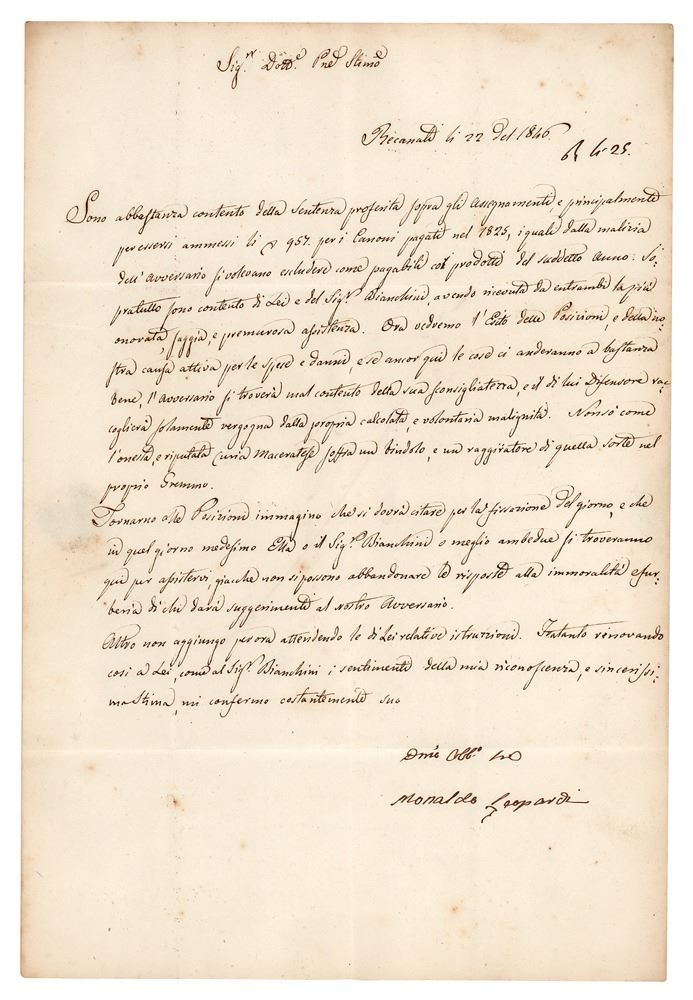 Sig.r Dott.e Pne Stimo
Recanati li 22 del 1846
li 25.
Sono abbastanza contento della Sentenza proferita sopra gli assegnamenti, e principalmente
per essersi ammessi li 957. per i Canoni pagati nel 1825, i quali dalla malizia
dell'Avversario si volevano escludere come pagabili coi prodotti del suddetto Anno: So:
pratutto sono contento di Lei e del Sig.r Bianchini, avendo ricevuta da entrambi la più
onorata, saggia, e premurosa assistenza. Ora vedremo l'Esito delle Posizioni, e della no:
stra causa attiva per le spese e danni, e se ancor qui le cose ci anderanno a bastanza
bene, l'Avversario si troverà mal contento della sua sconsigliatezza, e il di lui Difensore rac:
coglierà solamente vergogna dalla propria calcolata e volontaria malignità. Non so come
l'onesta, e riputata Curia Maceratese soffra un bindolo, e un raggiratore di quella sorte nel
proprio Gremmo.
Tornarno alle Posizioni immagino che si dovrà citare per la fissazione del giorno, e che
in quel giorno medesimo Ella o il Sig.r Bianchini o meglio ambedue si troveranno
qui per assistervi, giacche non si possono abbandonare le risposte alla immoralità e fur:
beria di chi darà suggerimenti al nostro Avversario.
Altro non aggiungo per ora attendendo le di Lei relative istruzioni. Fratanto rinovando
così a Lei, come al Sig.r Bianchini i sentimenti della mia riconoscenza, e sincerissi:
ma Stima, mi confermo costantemente suo
Dmo Obb.o
Monaldo Leopardi